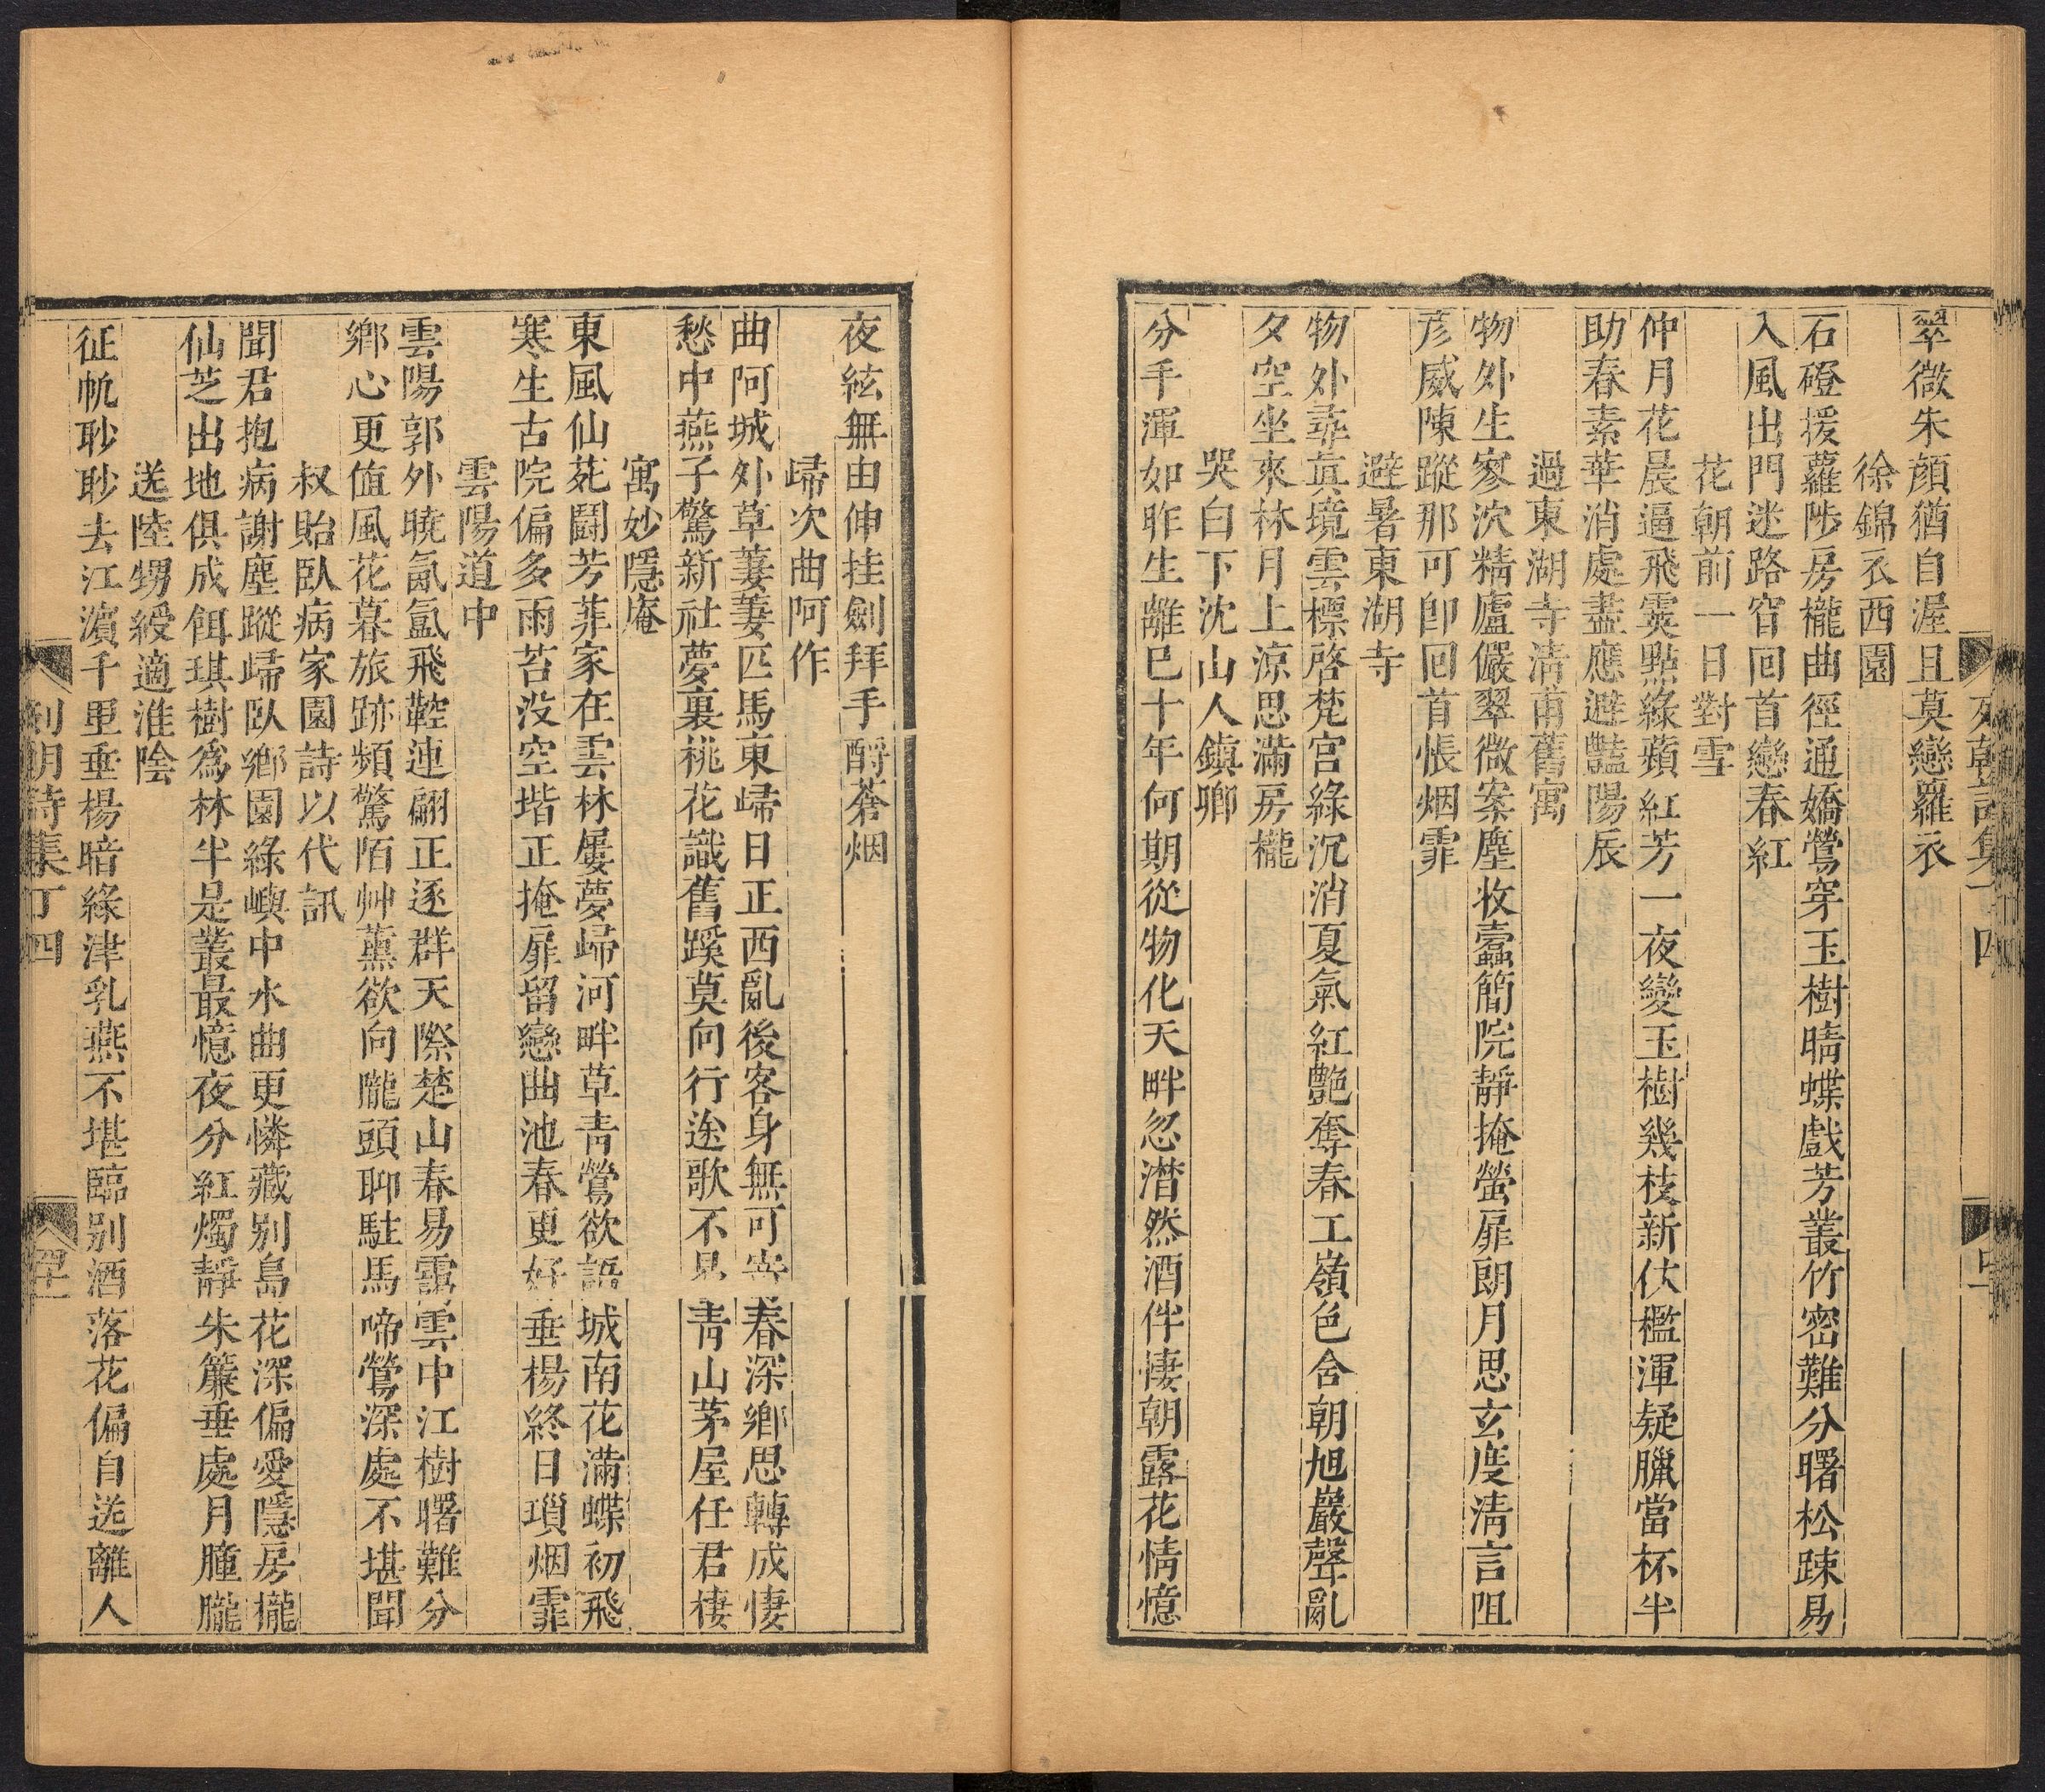 翠微朱顏猶自渥且莫戀羅衣
徐錦衣西園
石磴援蘿陟房櫳曲徑通嬌鶯穿玉樹晴蝶戲芳叢竹密難分曙松踈易
入風出門迷路窅回首戀春紅
花朝前一日對雪
仲月花晨逼飛霙點綠蘋紅芳一夜變玉樹幾枝新伏檻渾疑臘當杯半
助春素華消處盡應避豔陽辰
過東湖寺淸甫舊寓
物外生寥泬精廬儼翠微案塵收蠹簡院靜掩螢扉朗月思玄度淸言阻
彥威陳蹤那可卽回首悵烟霏
避暑東湖寺
物外尋眞境雲標啓梵宫綠沉消夏氣紅艷奪春工嶺色含朝旭巖聲亂
夕空坐來林月上涼思滿房櫳
哭白下沈山人鎭卿
分手渾如昨生離巳十年何期從物化天畔忽潸然酒伴悽朝露花情憶
夜絃無由伸挂劍拜手酹蒼烟
歸次曲阿作
曲阿城外草萋萋匹馬東歸日正西亂後客身無可寄春深鄉思轉成悽
愁中燕子驚新社夢裏桃花識舊蹊莫向行迷歌不見靑山茅屋任君棲
寓妙隱庵
東風仙苑鬪芳菲家在雲林屢夢歸河畔草靑鶯欲語城南花滿蝶初飛
寒生古院偏多雨苔沒空堦正掩扉留戀曲池春更好垂楊終日瑣烟霏
雲陽道中
雲陽郭外曉氤氳飛鞚連翩正逐群天際楚山春易靄雲中江樹曙難分
鄉心更値風花暮旅跡頻驚陌艸薰欲向隴頭聊駐馬啼鶯深處不堪聞
叔貽臥病家園詩以代訊
聞君抱病謝塵蹤歸臥鄉園綠嶼中水曲更憐藏别島花深偏愛隱房櫳
仙芝出地俱成餌琪樹爲林半是叢最憶夜分紅燭靜朱簾垂處月朣朧
送陸甥綬適淮陰
征帆眇眇去江濵千里垂楊暗綠津乳燕不堪臨别酒落花偏自送離人
刻明詩集丁四